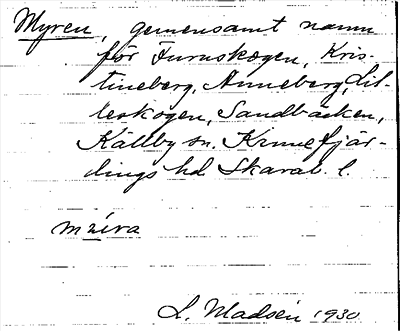 Myren, gemensamt namn
för Furuskogen, Kris-
tineberg, Anneberg, Lil-
leskogen, Sandbäcken,
Källby sn. Kinnefjär-
dings hd Skarab. l.
L. Madsén 1930.